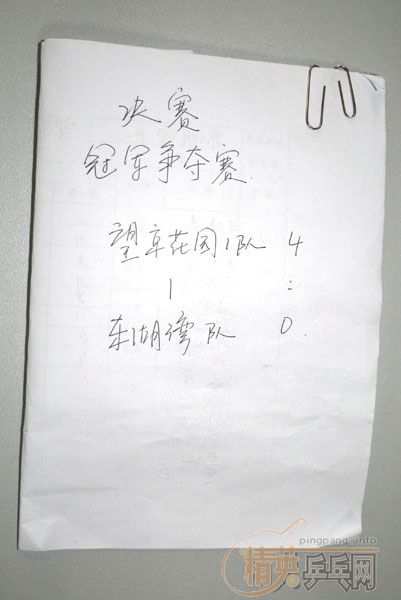 决赛
冠军争夺赛.
望京花园1队 4
| :
东湖湾队 0.
pingpang.info
精英乒乓网